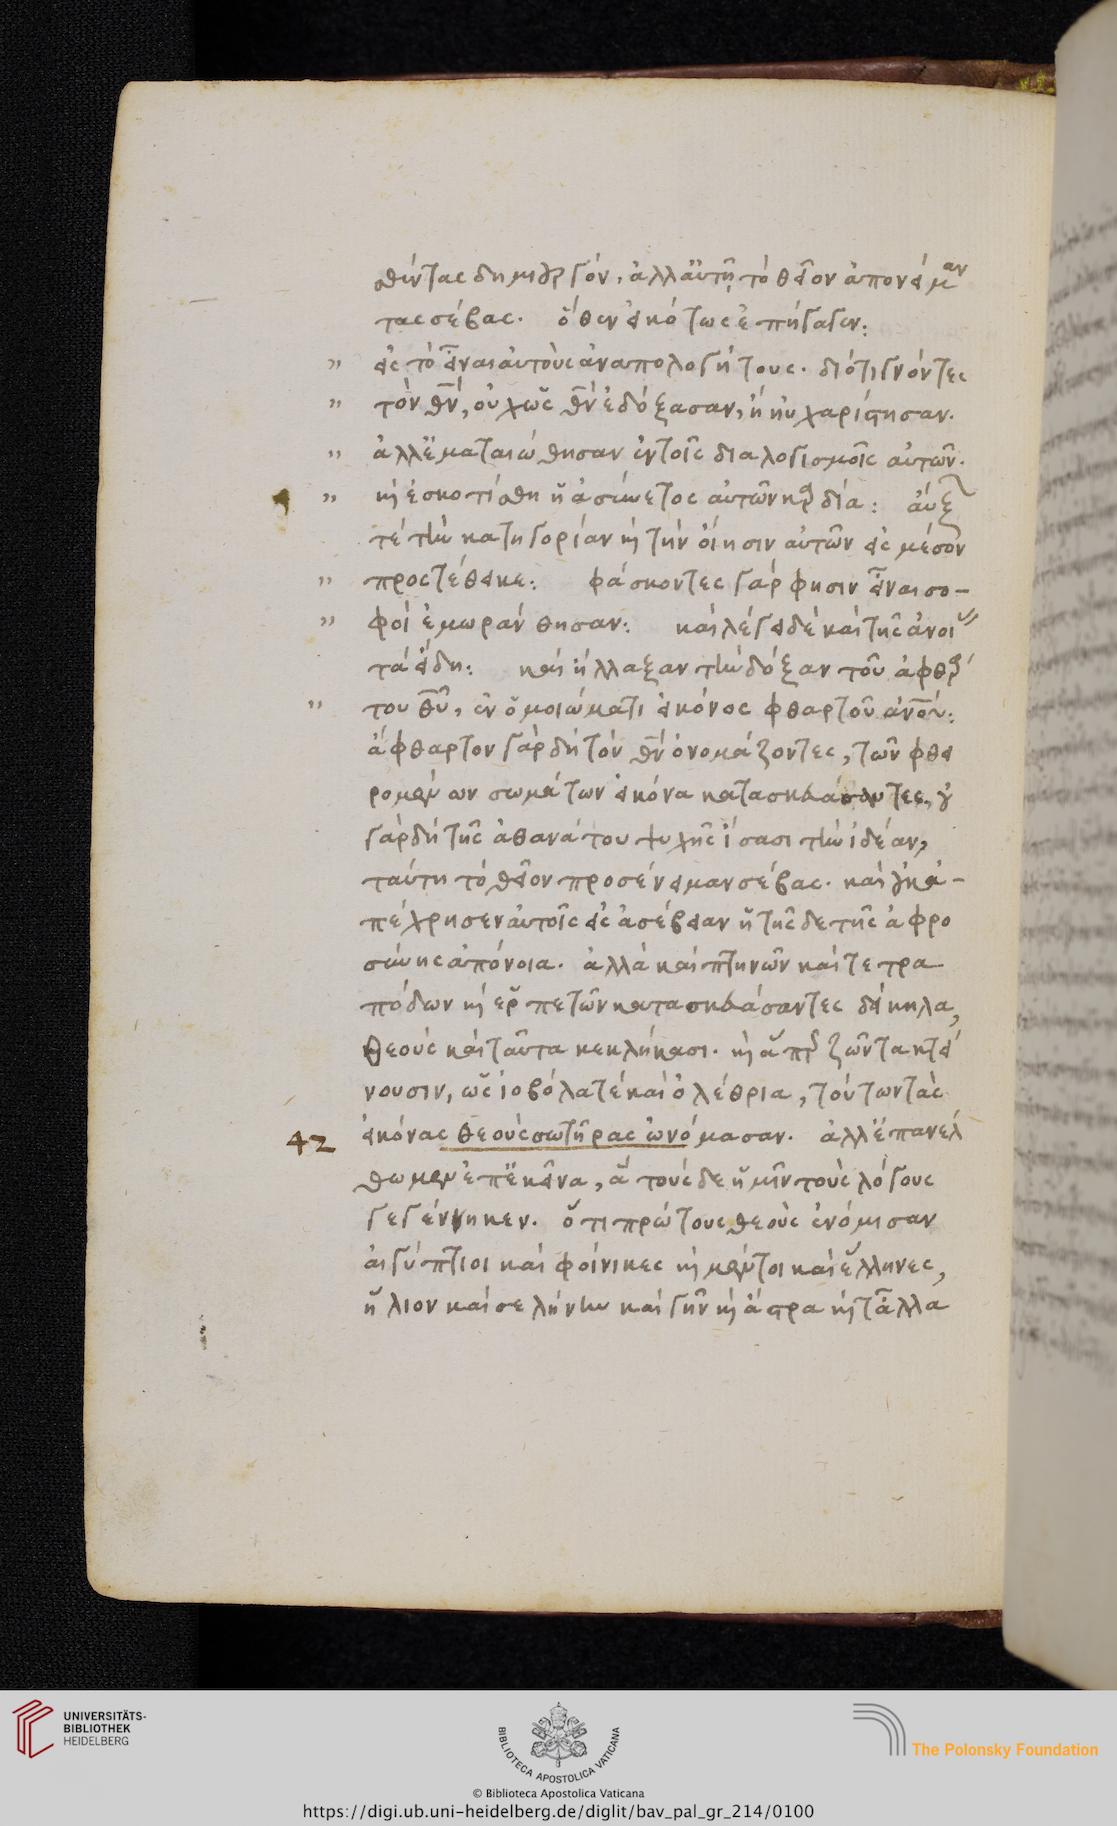 θέντας δημιουργόν, ἀλλ' αὐτῇ τὸ θεῖον ἀπονείμαν
τας σέβας. ὅθεν εἰκότως ἐπήγαγεν:
" εἰς τὸ εἶναι αὐτοὺς ἀναπολογήτους. διότι γνόντες
" τὸν θν̄, οὐχ ὡς θν̄ ἐδόξασαν, ἢ ηὐχαρίστησαν.
" ἀλλ' ἐματαιώθησαν ἐν τοῖς διαλογισμοῖς αὐτῶν.
" καὶ ἐσκοτίσθη ἡ ἀσύνετος αὐτῶν καρδία: αὔξ
τὲ τὴν κατηγορίαν καὶ τὴν οἴησιν αὐτῶν εἰς μέσον
" προστέθεικε: φάσκοντες γάρ φησιν εἶναι σο-
" φοὶ ἐμωράνθησαν: καὶ λέγει δὲ καὶ τῆς ἀνοίας
τὰ εἴδη: καὶ ἤλλαξαν τὴν δόξαν τοῦ ἀφθάρ
" του θῦ, ἐν ὁμοιώματι εἰκόνος φθαρτοῦ ἀνο̄υ:
ἄφθαρτον γὰρ δὴ τὸν θν̄ ὀνομάζοντες, τῶν φθει
ρομένων σωμάτων εἰκόνα κατασκευάσαντες, οὐ
γὰρ δὴ τῆς ἀθανάτου ψυχῆς ἴσασι τὴν ἰδέαν,
ταύτῃ τὸ θεῖον προσένειμαν σέβας. καὶ οὐκ ἀ-
πέχρησεν αὐτοῖς εἰς ἀσέβειαν ἡ τῆς δε τῆς ἀφρο
σύνης ἀπόνοια. ἀλλὰ καὶ πτηνῶν καὶ τετρα
πόδων καὶ ἑρπετῶν κατασκευάσαντες δείκηλα,
θεοὺς καὶ ταῦτα κεκλήκασι. καὶ ἅπερ ζῶντα κτεί
νουσιν, ὡς ἰοβόλα τὲ καὶ ὀλέθρια, τούτων τὰς
42 εἰκόνας θεοὺς σωτῆρας ὠνόμασαν. ἀλλ' ἐπανέλ
θωμεν ἐπ' ἐκεῖνα, ἃ τούς δε ἡμῖν τοὺς λόγους
γεγέννηκεν. ὅτι πρώτους θεοὺς ἐνόμισαν
αἰγύπτιοι καὶ φοίνικες καὶ μέντοι καὶ ἕλληνες,
ἥλιον καὶ σελήνην καὶ γῆν καὶ ἄστρα καὶ τἆλλα
UNIVERSITÄTS-
BIBLIOTHEK
HEIDELBERG
BIBLIOTECA APOSTOLICA VATICANA
The Polonsky Foundation
© Biblioteca Apostolica Vaticana
https://digi.ub.uni-heidelberg.de/diglit/bav_pal_gr_214/0100